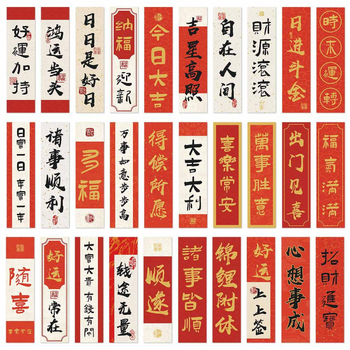 好運加持
鸿运当头
日日是好日
纳福
迎新
今日大吉
吉星高照
自在人间
财源滚滚
日进斗金
時来運轉
日富一日 年富一年
诸事顺利
多福
万事如意步步高
得偿所愿
大吉大利
喜樂常安
萬事胜意
出门见喜
福气满满
随喜
好运
常在
大富大贵 有钱有闲
钱途无量
顺遂
諸事皆順
锦鲤附体
好运
上上签
心想事成
招財進寶